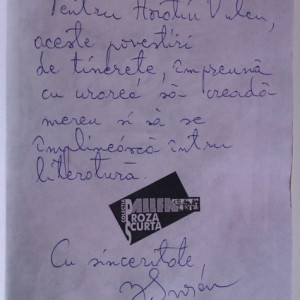 Pentru Horațiu Vulcu,
aceste povestiri
de tinerețe, împreună
cu urarea să creadă
mereu și să se
împlinească întru
literatură.
COLECȚIA
PROZA
SCURTA
Cu sinceritate,